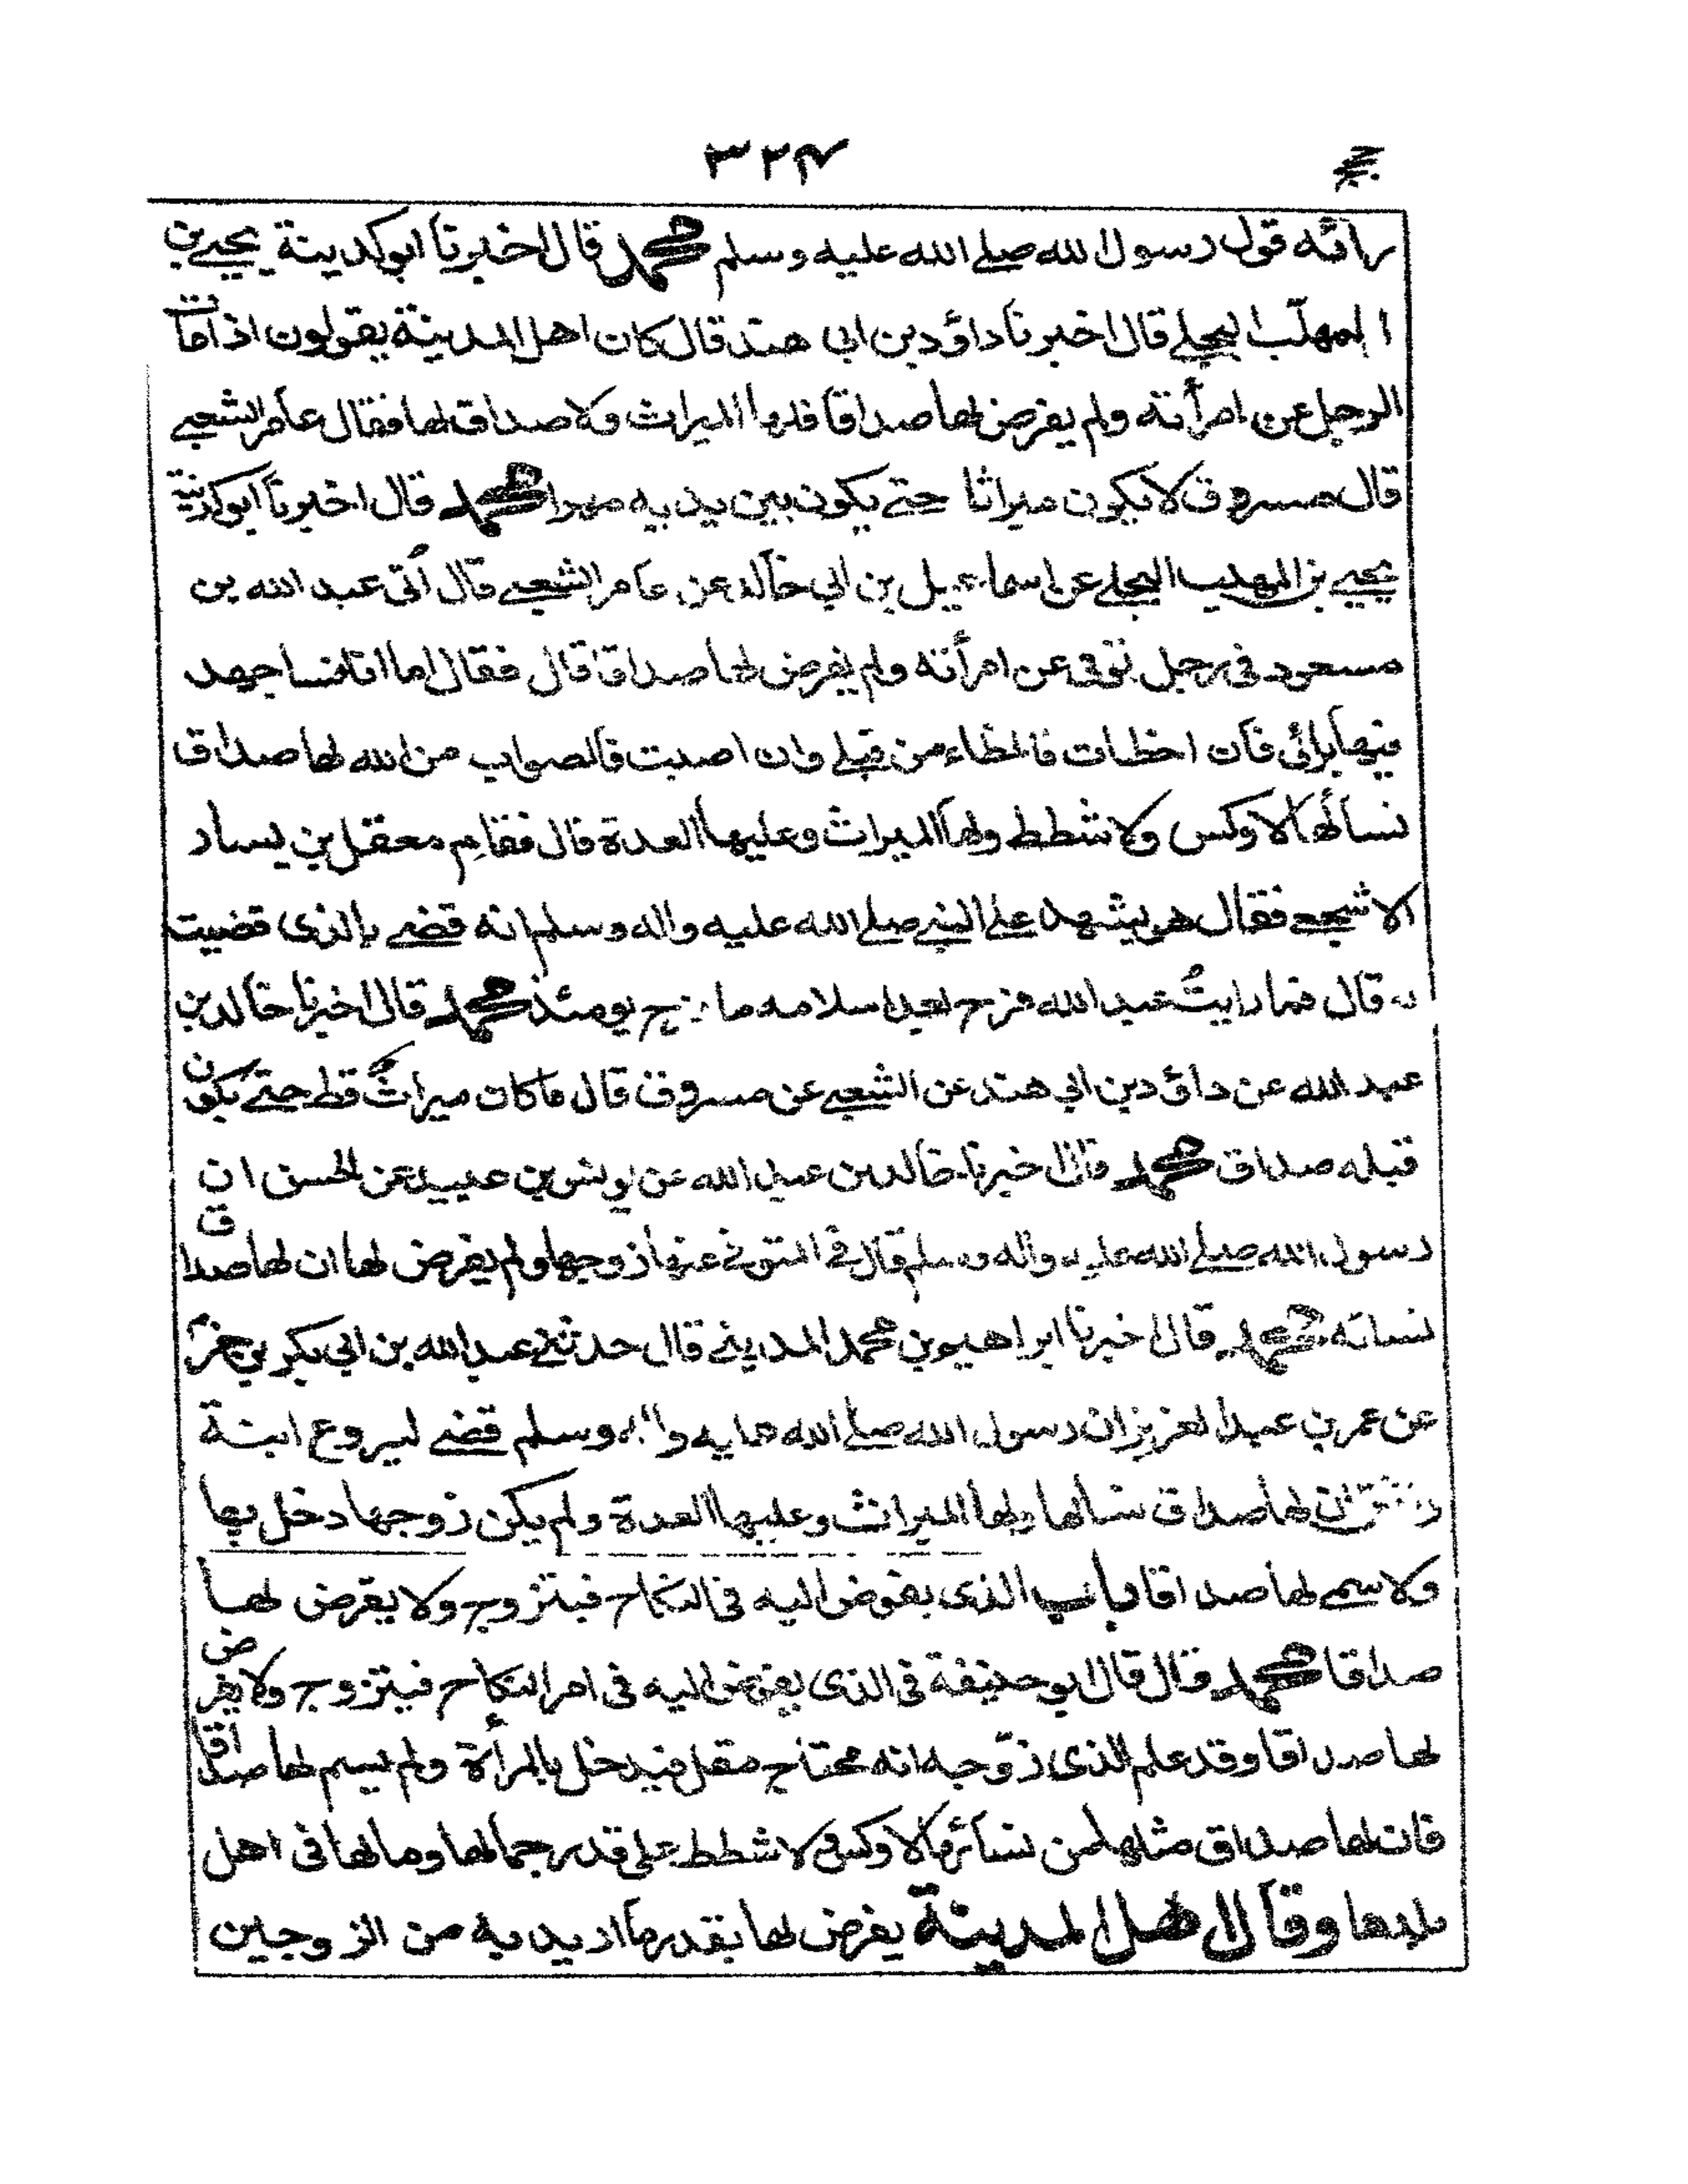 ٣٢٤
رائه قول رسول الله صلى الله عليه وسلم محمد قال اخبرنا ابو كدينة يحيى بن
المهلب البجلي قال اخبرنا داؤد بن ابي هند قال كان اهل المدينة يقولون اذا مات
الرجل عن امرأته ولم يفرض لها صداقا فلها الميراث ولا صداق لها فقال عامر الشعبي
قال مسروق لا يكون ميراثا حتى يكون بين يديه مهرا محمد قال اخبرنا ابو كدينة
يحيى بن المهلب البجلي عن اسماعيل بن ابي خالد عن عامر الشعبي قال أتى عبد الله بن
مسعود في رجل توفي عن امرأته ولم يفرض لها صداقا قال فقال اما انا فساجهد
فيها برائي فان اخطات فالخطاء من قبلي وان اصبت فالصواب من الله لها صداق
نسائها لا وكس ولا شطط ولها الميراث وعليها العدة قال فقام معقل بن يسار
الاشجعي فقال هو يشهد على النبي صلى الله عليه واله وسلم انه قضى بالذي قضيت
به قال فما رايتُ عبد الله فرح بعد اسلامه ما فرح يومئذ محمد قال اخبرنا خالد بن
عبد الله عن داؤد بن ابي هند عن الشعبي عن مسروق قال ما كان ميراثٌ قط حتى يكون
قبله صداق محمد قال اخبرنا خالد بن عبد الله عن يونس بن عبيد عن الحسن ان
رسول الله صلى الله عليه واله وسلم قال في المتوفى عنها زوجها ولم يفرض لها ان لها صداق
نسائه محمد قال اخبرنا ابراهيم بن محمد المديني قال حدثني عبد الله بن ابي بكر بن حزم
عن عمر بن عبد العزيز ان رسول الله صلى الله عليه واله وسلم قضى لبروع ابنة
ان لها صداق نسائها ولها الميراث وعليها العدة ولم يكن زوجها دخل بها
ولا سمى لها صداقا باب الذي يفوض اليه في النكاح فيتزوج ولا يفرض لها
صداقا محمد قال قال ابو حنيفة في الذي يفوض اليه في امر النكاح فيتزوج ولا يفرض
لها صداقا وقد علم الذي زوّجه انه محتاج مقل فيدخل بالمرأة ولم يسم لها صداقا
فان لها صداق مثلها من نسائها لا وكس ولا شطط على قدر جمالها ومالها في اهل
بلدها وقال اهل المدينة يفرض لها بقدر ما اريد به من الزوجين